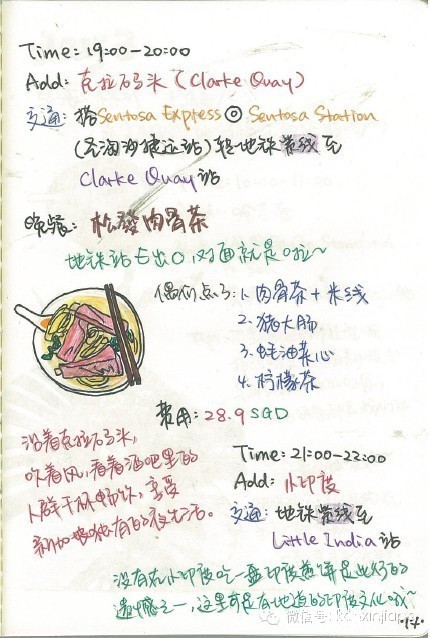 Time: 19:00-20:00
Add: 克拉码头 (Clarke Quay)
交通: 搭Sentosa Express @ Sentosa Station
(圣淘沙捷运站)转地铁紫线至
Clarke Quay站
晚餐: 松發肉骨茶
地铁站E出口,对面就是啦~
偶们点了: 1. 肉骨茶+米线
2. 猪大肠
3. 蚝油菜心
4. 柠檬茶
费用: 28.9 SGD
沿着克拉码头,
吹着风,看着酒吧里的
人群干杯畅饮,享受
新加坡独有的夜生活。
Time: 21:00-22:00
Add: 小印度
交通: 地铁紫线至
Little India站
没有在小印度吃一盘印度煎饼是此行的
遗憾之一,这里可是有地道的印度文化哦~
微信号: kc-xinjia
·14·